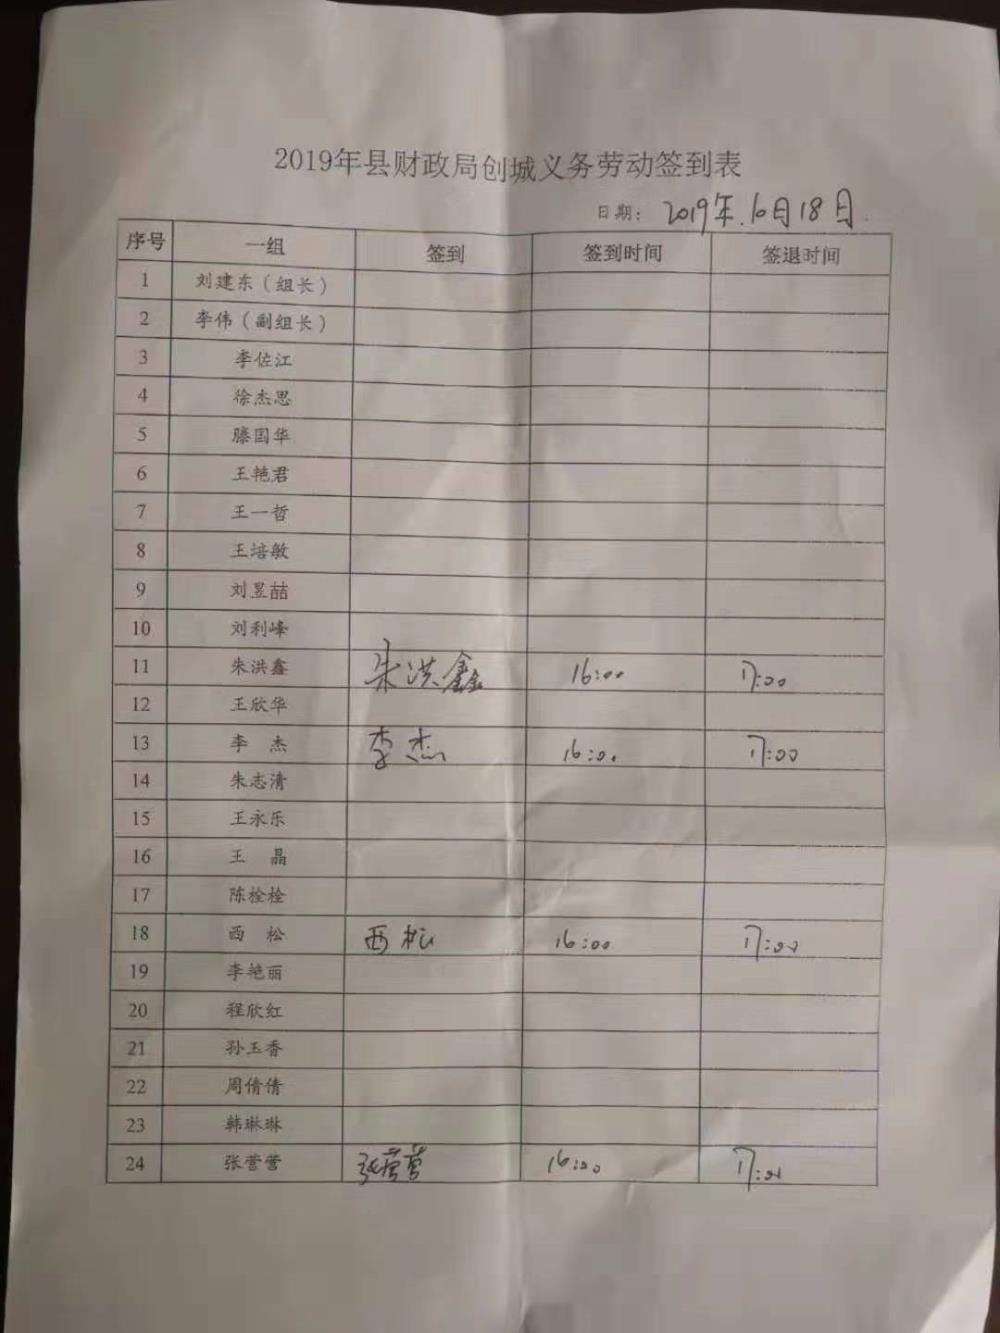 2019年县财政局创城义务劳动签到表
日期: 2019年.10月18日.
序号 一组 签到 签到时间 签退时间
1 刘建东（组长）
2 李伟（副组长）
3 李佐江
4 徐杰思
5 滕国华
6 王艳君
7 王一哲
8 王培敏
9 刘昱喆
10 刘利峰
11 朱洪鑫 朱洪鑫 16:00 17:00
12 王欣华
13 李 杰 李杰 16:00 17:00
14 朱志清
15 王永乐
16 王 晶
17 陈栓栓
18 西 松 西松 16:00 17:00
19 李艳丽
20 程欣红
21 孙玉香
22 周倩倩
23 韩琳琳
24 张营营 张营营 16:00 17:00